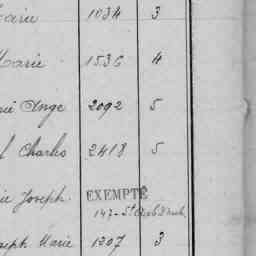 Marie 1034 3
Marie 1536 4
Ange 2092 5
Charles 2418 5
Joseph EXEMPTÉ
147 - St
Joseph Marie 1207 3